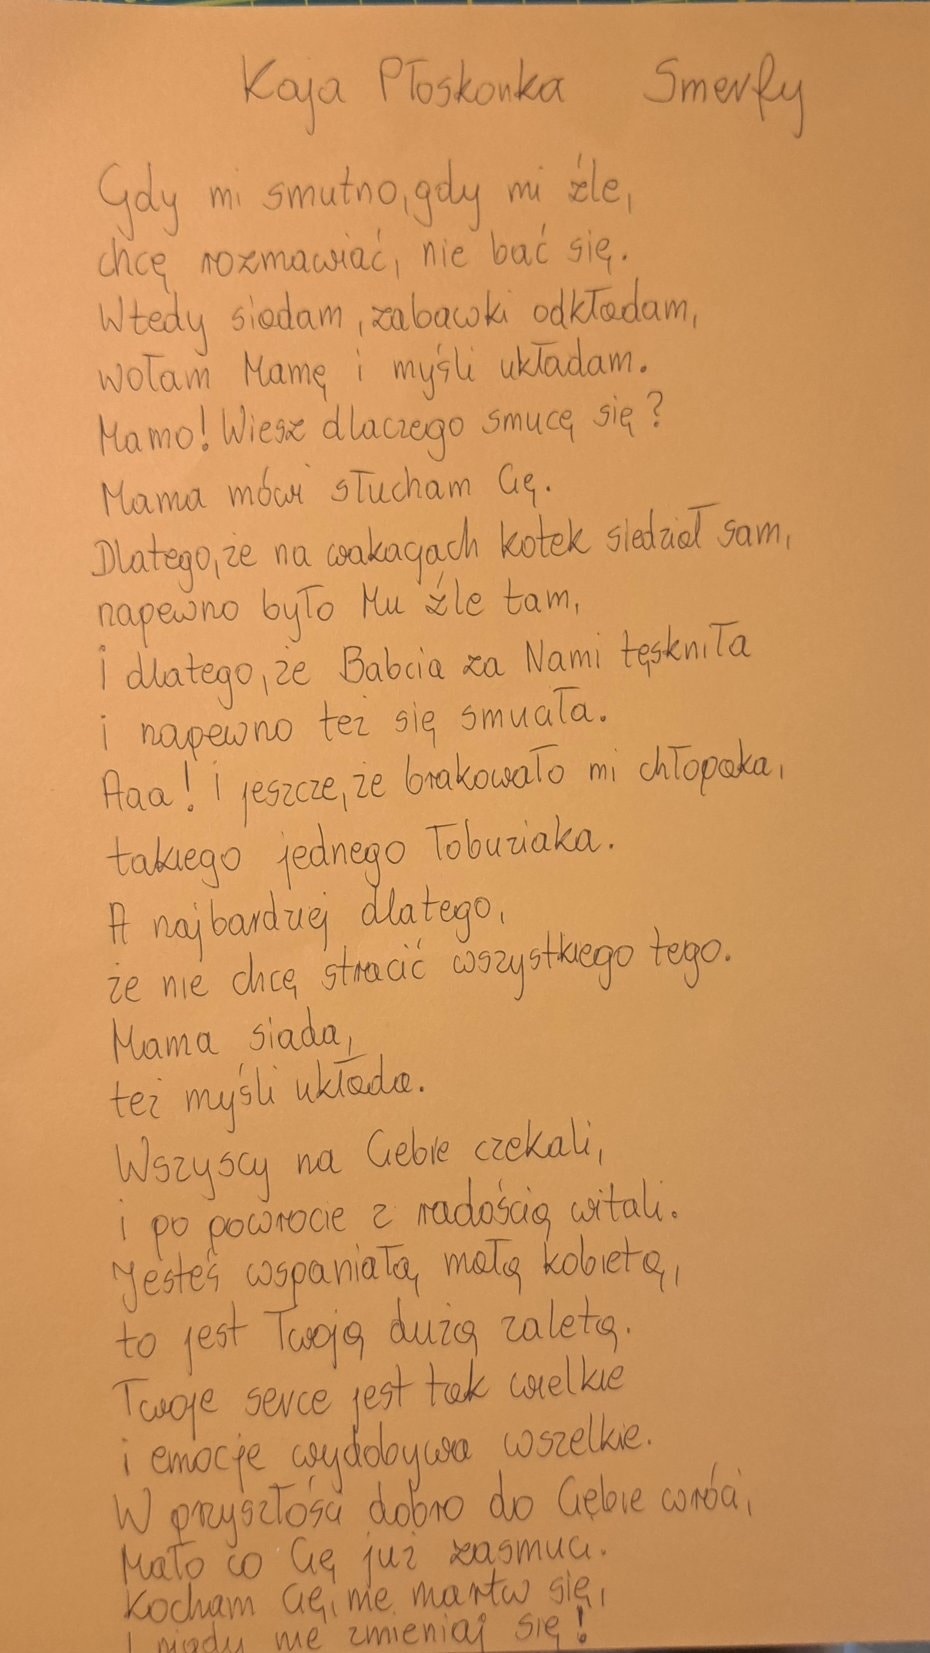 Kaja Płoskonka Smerfy
Gdy mi smutno, gdy mi źle,
chcę rozmawiać, nie bać się.
Wtedy siadam, zabawki odkładam,
wołam Mamę i myśli układam.
Mamo! Wiesz dlaczego smucę się?
Mama mówi słucham Cię.
Dlatego, że na wakacjach kotek siedział sam,
napewno było Mu źle tam,
i dlatego, że Babcia za Nami tęskniła
i napewno też się smuciła.
Aaa! i jeszcze, że brakowało mi chłopaka,
takiego jednego łobuziaka.
A najbardziej dlatego,
że nie chcę stracić wszystkiego tego.
Mama siada,
też myśli układa.
Wszyscy na Ciebie czekali,
i po powrocie z radością witali.
Jesteś wspaniałą, małą kobietą,
to jest Twoją dużą zaletą.
Twoje serce jest tak wielkie
i emocje wydobywa wszelkie.
W przyszłości dobro do Ciebie wróci,
Mało co Cię już zasmuci.
Kocham Cię, nie martw się,
i nigdy nie zmieniaj się!